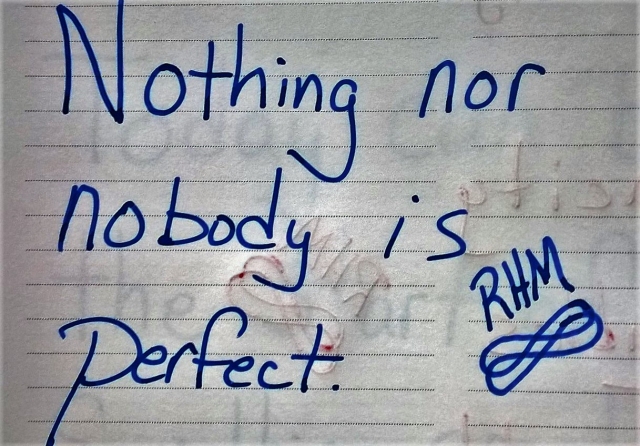 Nothing nor
nobody is
perfect.
RHM